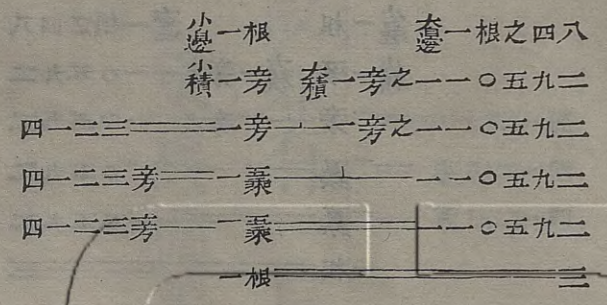 小邊一根 大邊一根之四八
小積一立方 大積一立方之一一〇五九二
四一二三══一立方—┴—一立方之一一〇五九二
四一二三立方══一五乘方——┴——一一〇五九二
四一二三立方——一五乘方══一一〇五九二
一根══三